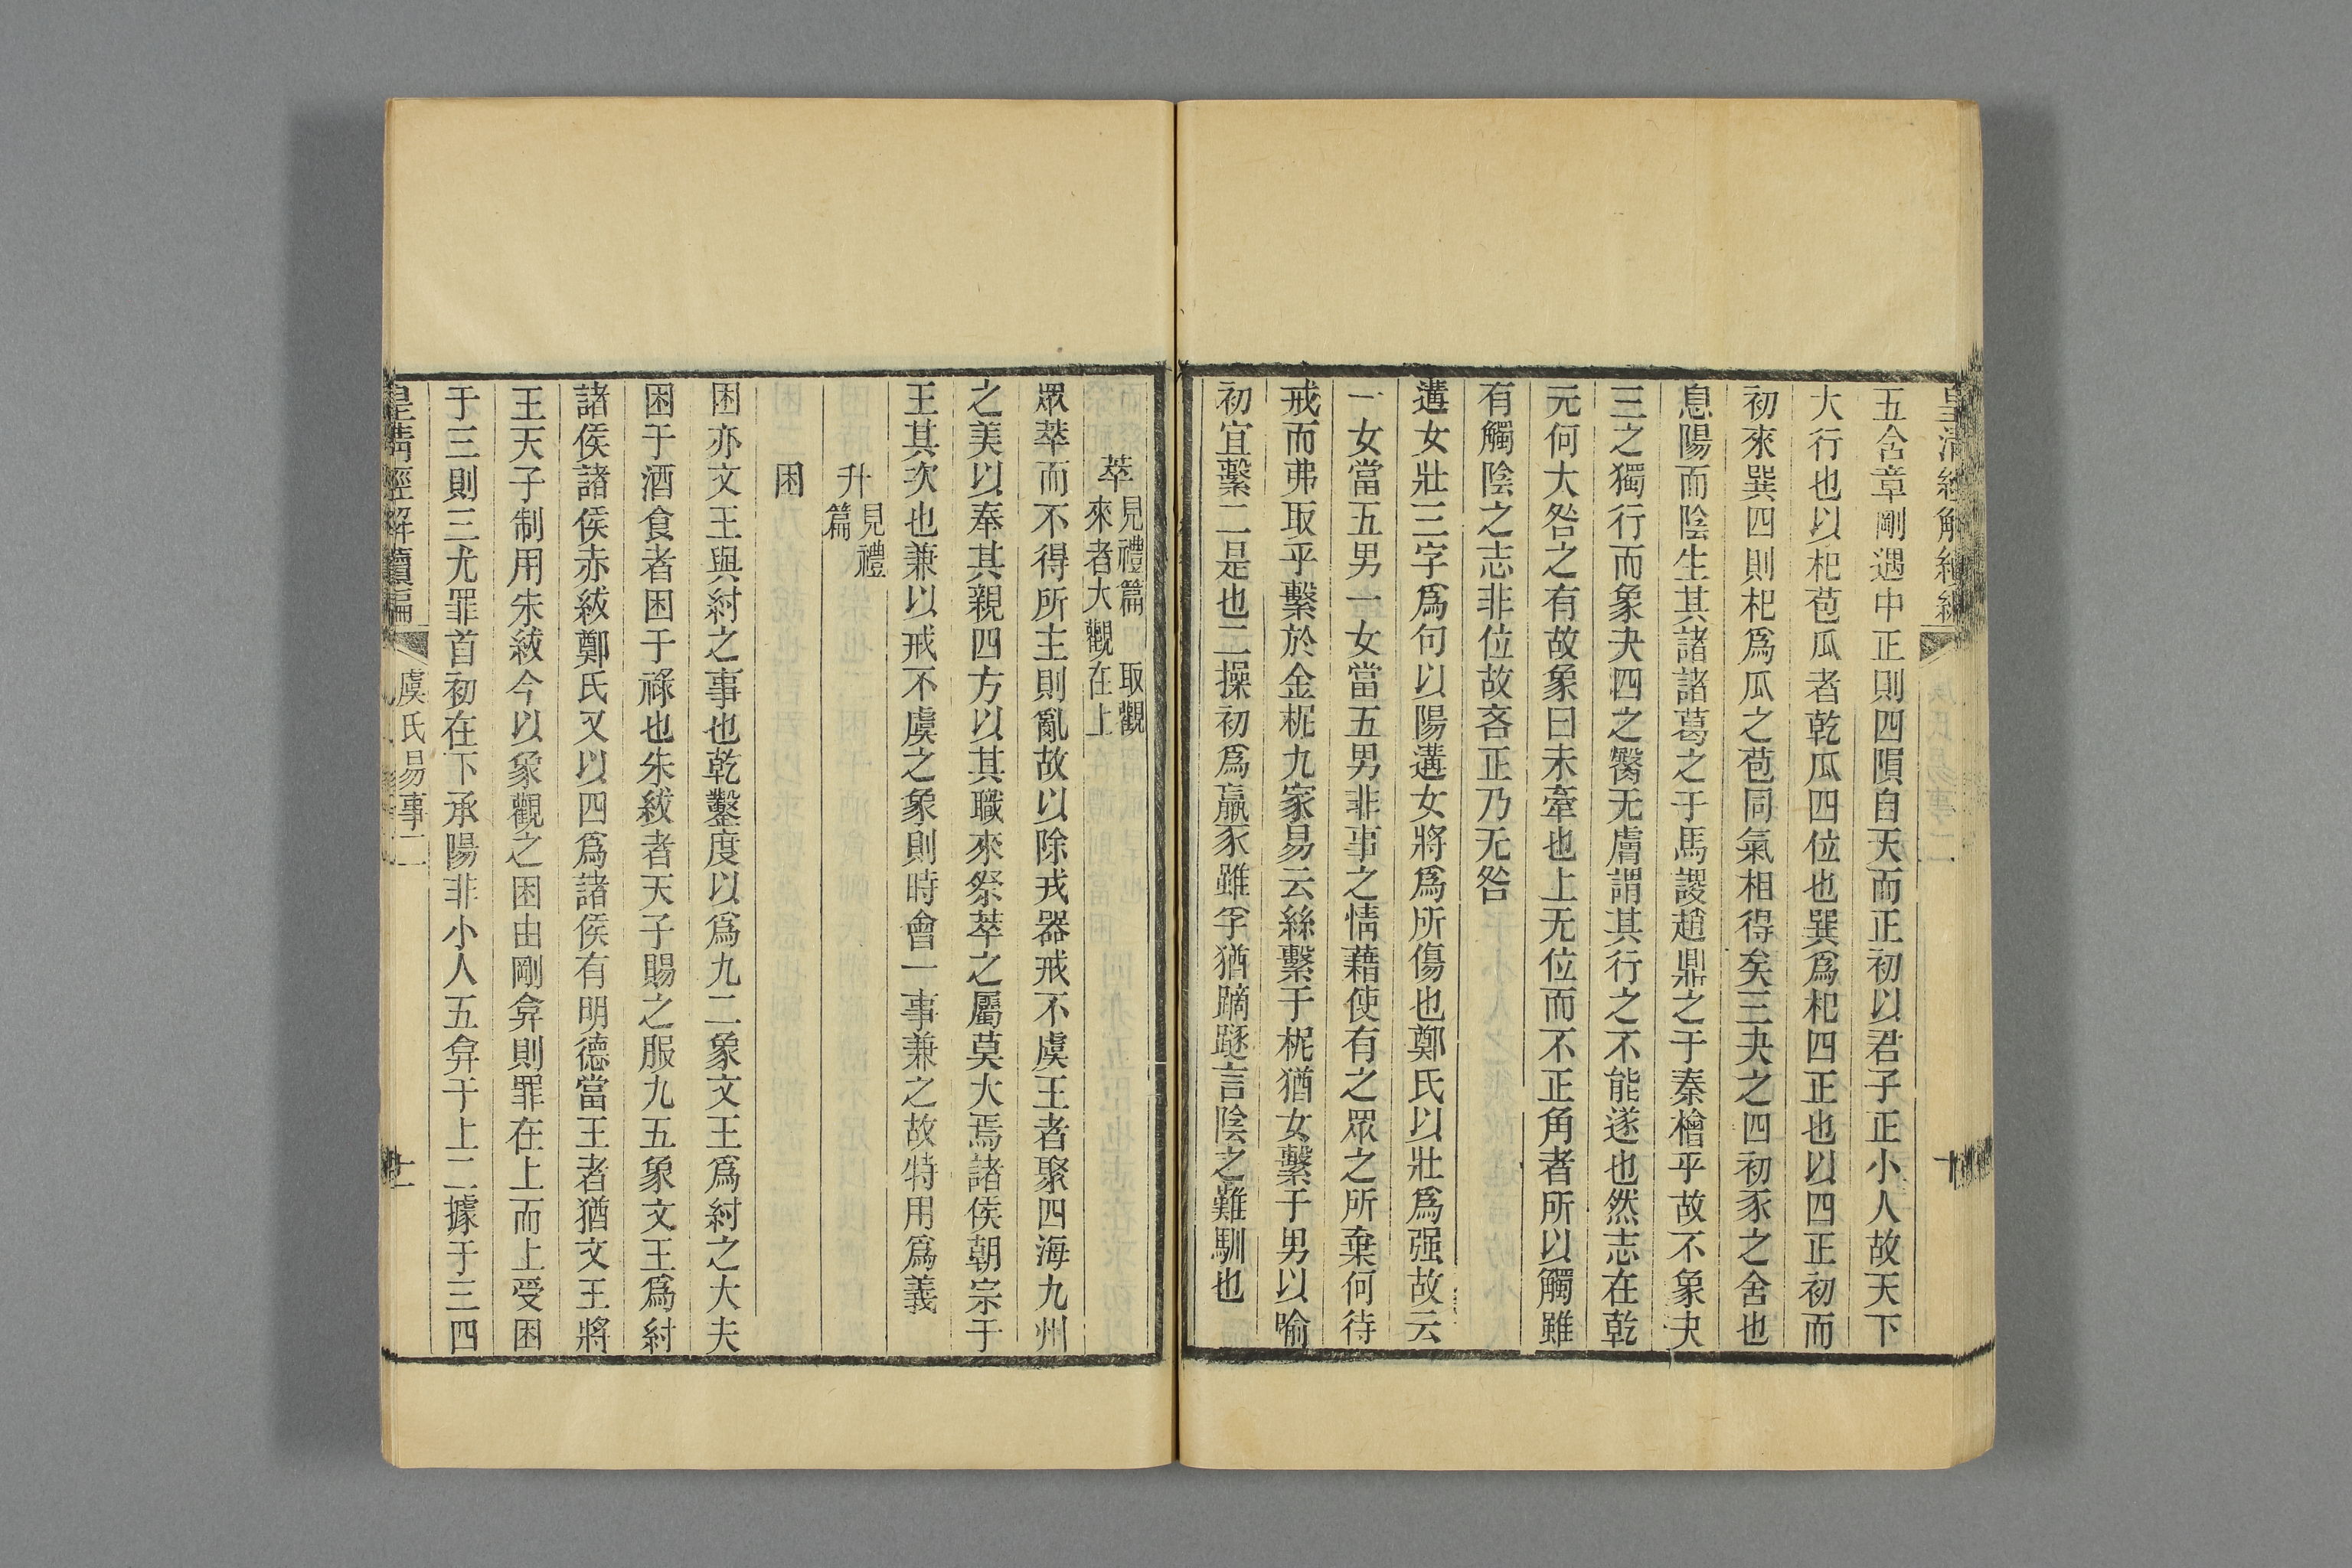 五含章剛遇中正則四隕自天而正初以君子正小人故天下
大行也以杞苞瓜者乾瓜四位也巽爲杞四正也以四正初而
初來巽四則杞爲瓜之苞同氣相得矣三夬之四初豕之舍也
息陽而陰生其諸諸葛之于馬謖趙鼎之于秦檜乎故不象夬
三之獨行而象夬四之臀无膚謂其行之不能遂也然志在乾
元何大咎之有故象曰未牽也上无位而不正角者所以觸雖
有觸陰之志非位故吝正乃无咎
遘女壯三字爲句以陽遘女將爲所傷也鄭氏以壯爲强故云
一女當五男一女當五男非事之情藉使有之眾之所棄何待
戒而弗取乎繫於金柅九家易云絲繫于柅猶女繫于男以喻
初宜繫二是也二操初爲羸豕雖孚猶蹢躅言陰之難馴也
萃見禮篇 取觀
來者大觀在上
眾萃而不得所主則亂故以除戎器戒不虞王者聚四海九州
之美以奉其親四方以其職來祭萃之屬莫大焉諸侯朝宗于
王其次也兼以戒不虞之象則時會一事兼之故特用爲義
升見禮
篇
困
困亦文王與紂之事也乾鑿度以爲九二象文王爲紂之大夫
困于酒食者困于祿也朱紱者天子賜之服九五象文王爲紂
諸侯諸侯赤紱鄭氏又以四爲諸侯有明德當王者猶文王將
王天子制用朱紱今以象觀之困由剛弇則罪在上而上受困
于三則三尤罪首初在下承陽非小人五弇于上二據于三四
皇清經解續編
虞氏易事二
十一